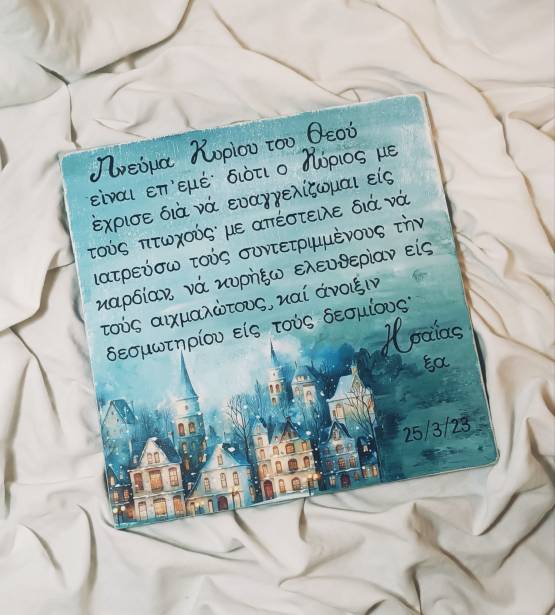 Πνεύμα Κυρίου του Θεού
είναι επ' εμέ· διότι ο Κύριος με
έχρισε διὰ νά ευαγγελίζωμαι είς
τούς πτωχούς· με απέστειλε διά νά
ιατρεύσω τούς συντετριμμένους τὴν
καρδίαν, νά κυρήξω ελευθερίαν είς
τούς αιχμαλώτους, καί άνοιξιν
δεσμωτηρίου είς τούς δεσμίους·
Ησαΐας
ξα
25/3/23